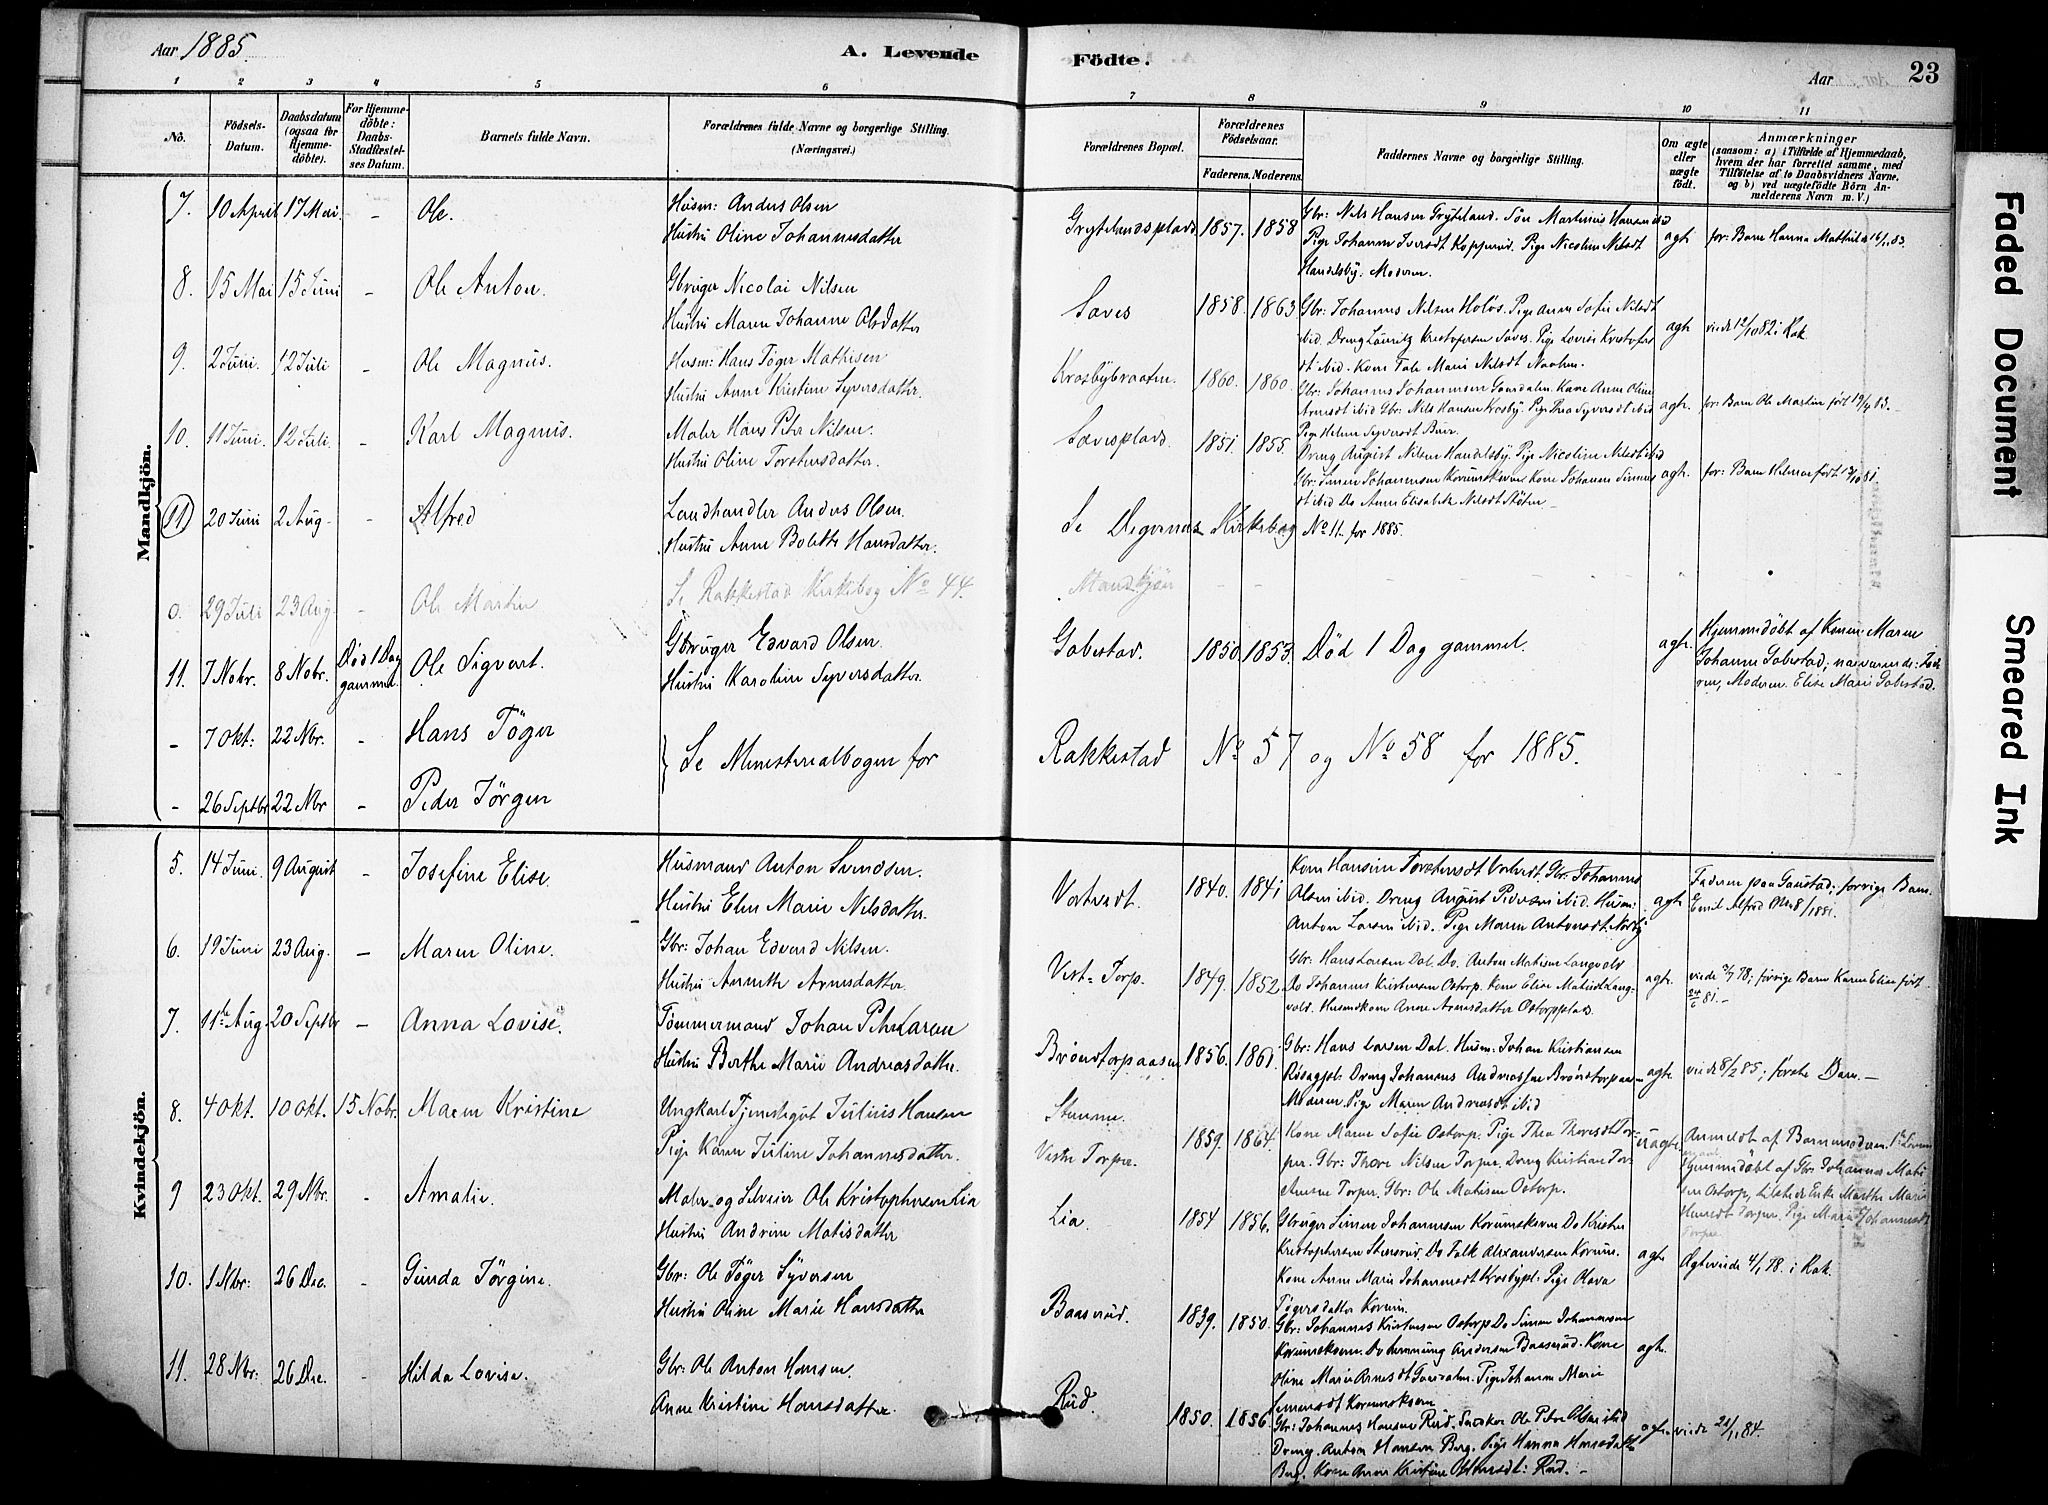 Aar 1885.
A. Levende Födte.
Aar
23
1 2 3 4 5 6 7 8 9 10 11
No.
Födsels-Datum.
Daabsdatum (ogsaa for Hjemme-döbte).
For Hjemme-döbte: Daabs-Stadfæstel-ses Datum.
Barnets fulde Navn.
Forældrenes fulde Navne og borgerlige Stilling.
(Næringsvei.)
Forældrenes Bopæl.
Forældrenes Födselsaar.
Faderens. Moderens.
Faddernes Navne og borgerlige Stilling.
Om ægte eller uægte födt.
Anmærkninger
(saasom: a) i Tilfælde af Hjemmedaab,
hvem der har forrettet samme, med
Tilföielse af to Daabsvidners Navne,
og b) ved uægtefödte Börn An-
melderens Navn m. V.)
Mandkjön.
7. 10 April 17 Mai. - Ole. Husm: Anders Olsen
Hustru Oline Johannesdatter
Grytelandsplads 1857. 1858
Gbr: Nils Hansen Gryteland. Sön Martinius Hansen ibid
Pige Johanne Iversdt Kopperud. Pige Nicoline Nilsdt
Handelsby. Moderen.
ægt. for: Barn Hanna Mathilde 16/1.83.
8. 15 Mai 15 Juni - Ole Anton. Gbruger Nicolai Nilsen
Hustru Maren Johanne Olsdatter
Saves 1858. 1863
Gbr: Johannes Nilsen Holös. Pige Anne Sofie Nilsdt
ibid. Dreng Lauritz Kristofersen Saves. Pige Lovise Kristofers
dt ibid. Kone Tale Marie Nilsdt
ægt. viede 12/10 82 i Rak.
9. 2 Juni. 12 Juli - Ole Magnus. Husm: Hans Töger Mathisen
Hustru Anne Kristine Syversdatter.
Krosbybraaten. 1860. 1860.
Gbr: Johannes Johannesen Gaardalen. Kone Anne Oline
Arnesdt ibid Gbr: Nils Hansen Krosby. Pige Thea Syversdt ibid
Pige Helene Syversdt Buer.
ægt. for: Barn Ole Martin född 19/4 83. -
10. 11 Juni. 12 Juli. - Karl Magnus. Maler Hans Peter Nilsen.
Hustru Oline Torstensdatter.
Savesplads. 1851. 1855.
Dreng August Nilsen Handelsby. Pige Nicoline Nilsdt ibid
Gbr: Simen Johannesen Korumskoven Kone Johanne Simens
dt ibid Do Anne Elisabeth Nilsdt
ægt. for: Barn Helmer född 13/10 81.
(11) 20 Juni 2 Aug - Alfred Landhandler Anders Olsen.
Hustru Anne Bolette Hansdatter.
Se Degernes Kirkebog No 11. for 1885.
0. 29 Juli 23 Aug. - Ole Martin Se Rakkestad Kirkebog No 44. Mandkjön - - -
11. 7 Nobr. 8 Nobr. Död 1 Dag gammel. Ole Sigvart. Gbruger Edvard Olsen.
Hustru Karoline Syversdatter.
Gabestad. 1850. 1853. Död 1 Dag gammel. ægt.
Hjemmedöbt af Konen Maren
Johanne Gabestad; nærværende: Fade-
ren, Moderen. Elise Marie Gabestad.
- 7 Okt: 22 Nbr. - Hans Töger
} Se Ministerialbogen for Rakkestad No 57 og No 58 for 1885.
- 26 Septbr 22 Nbr - Peder Jörgen
Kvindekjön.
5. 14 Juni. 9 August - Josefine Elise. Husmand Anton Svendsen
Hustru Elen Marie Nilsdatter.
Vortvedt. 1840. 1841
Kone Hansine Torstensdt Vortvedt. Gbr. Johannes
Olsen ibid. Dreng August Pedersen ibid. Husm:
Anton Larsen ibid. Pige Maren Antonsdt.
ægt. Faderen paa Gaustad; forrige Barn.
Emil Alfred 8/1881.
6. 19 Juni 23 Aug. - Maren Oline. Gbr: Johan Edvard Nilsen.
Hustru Annette Arnesdatter.
Vest-Torp. 1849. 1852.
Gbr: Hans Larsen Dal. Do. Anton Matisen Langvold
Do Johannes Kristensen Ostorp. Kone Elise Matisdt Lang-
vold. Husmdkone Anne Arnesdatter Ostorpplads.
ægt. viede 3/7 78; forrige Barn Karen Elise född
24/6 81. -
7. 11te Aug. 20 Septbr - Anna Lovise. Tömmermand Johan Peter Larsen
Hustru Berthe Marie Andreasdatter.
Bröndtorpaasen 1856. 1861.
Gbr: Hans Larsen Dal. Husm: Johan Kristiansen
Dreng Johannes Andreassen Bröndtorpaasen
Moderen Pige Maren Andreasdt ibid
ægt viede 8/2 85; förste Barn. -
8. 4 Okt. 10 Okt. 15 Nobr. Maren Kristine Ungkarl Tjenestegut Julius Hansen
Pige Karen Juline Johannesdatter.
Stemme.
Vestre Torper. 1859. 1864.
Kone Maren Sofie Ostorp. Pige Thea Thoresdt Tor-
per. Gbr: Thore Nilsen Torper. Dreng Kristian Tor-
Torper. Gbr: Ole Matisen Ostorp.
uægte Anmeldt af Barnemoderen.
Hjemmedöbt af Gbr: Johannes Mati
sen Ostorp, Enke Marthe Marie
Torper. Pige Marie Johannesdt
Torper
9 23 Okt. 29 Nbr. - Amalie. Maler og Ole Kristophersen Lia
Hustru Andrine Matisdatter
Lia. 1854 1856.
Gbruger Simen Johannesen Korumskoven Do Krister
Kristophersen Stensrud. Do Falk Alexandersen Korum.
Kone Anne Marie Johannesdt Krosbypl. Pige Olava
Tögersdatter Korum.
ægte Ægteviede 4/1 78. i Rak.
10. 1 Nbr: 26 Dec. - Gunda Jörgine. Gbr: Ole Töger Syversen
Hustru Oline Marie Hansdatter
Baaserud. 1839. 1850.
Gbr: Johannes Kristensen Ostorp Do Simen Johannesen
Korumskoven. Do Andersen Baaserud. Kone
Oline Marie Arnesdt Gaardalen. Pige Johanne Marie
Simensdt Korumskoven
ægt.
11. 28 Nbr: 26 Dec. - Hilda Lovise. Gbr: Ole Anton Hansen.
Anne Kristine Hansdatter.
Rud. 1850. 1856.
Gbr: Johannes Hansen Rud. Ole Peter Olsen ibid
Dreng. Anton Hansen Berg. Pige Hanna Hansdatter
Berg. Kone Anne Kristine Rud. -
ægte viede 21/1. 84.
Faded Document
Smeared Ink